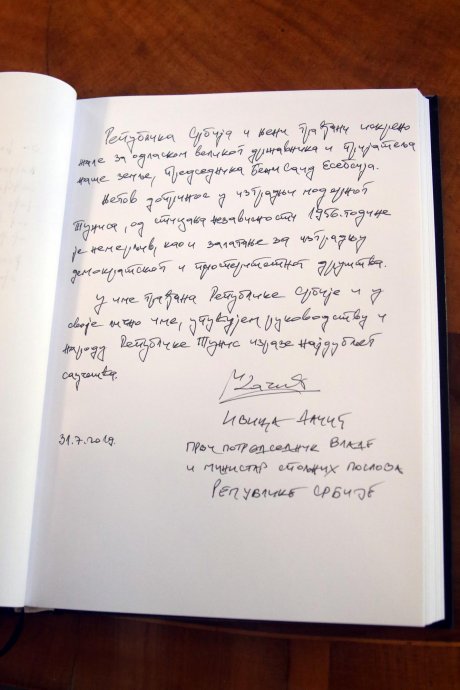 Република Србија и њени грађани искрено
жале за одласком великог државника и пријатеља
наше земље, председника Бежи Саид Есебсија.
Његов допринос у изградњи модерног
Туниса, од стицања независности 1956. године
је немерљив, као и залагање за изградњу
демократског и просперитетног друштва.
У име грађана Републике Србије и у
своје лично име, упућујем руководству и
народу Републике Тунис изразе најдубљег
саучешћа.
ИВИЦА ДАЧИЋ
31.7.2019.
ПРВИ ПОТПРЕДСЕДНИК ВЛАДЕ
И МИНИСТАР СПОЉНИХ ПОСЛОВА
РЕПУБЛИКЕ СРБИЈЕ